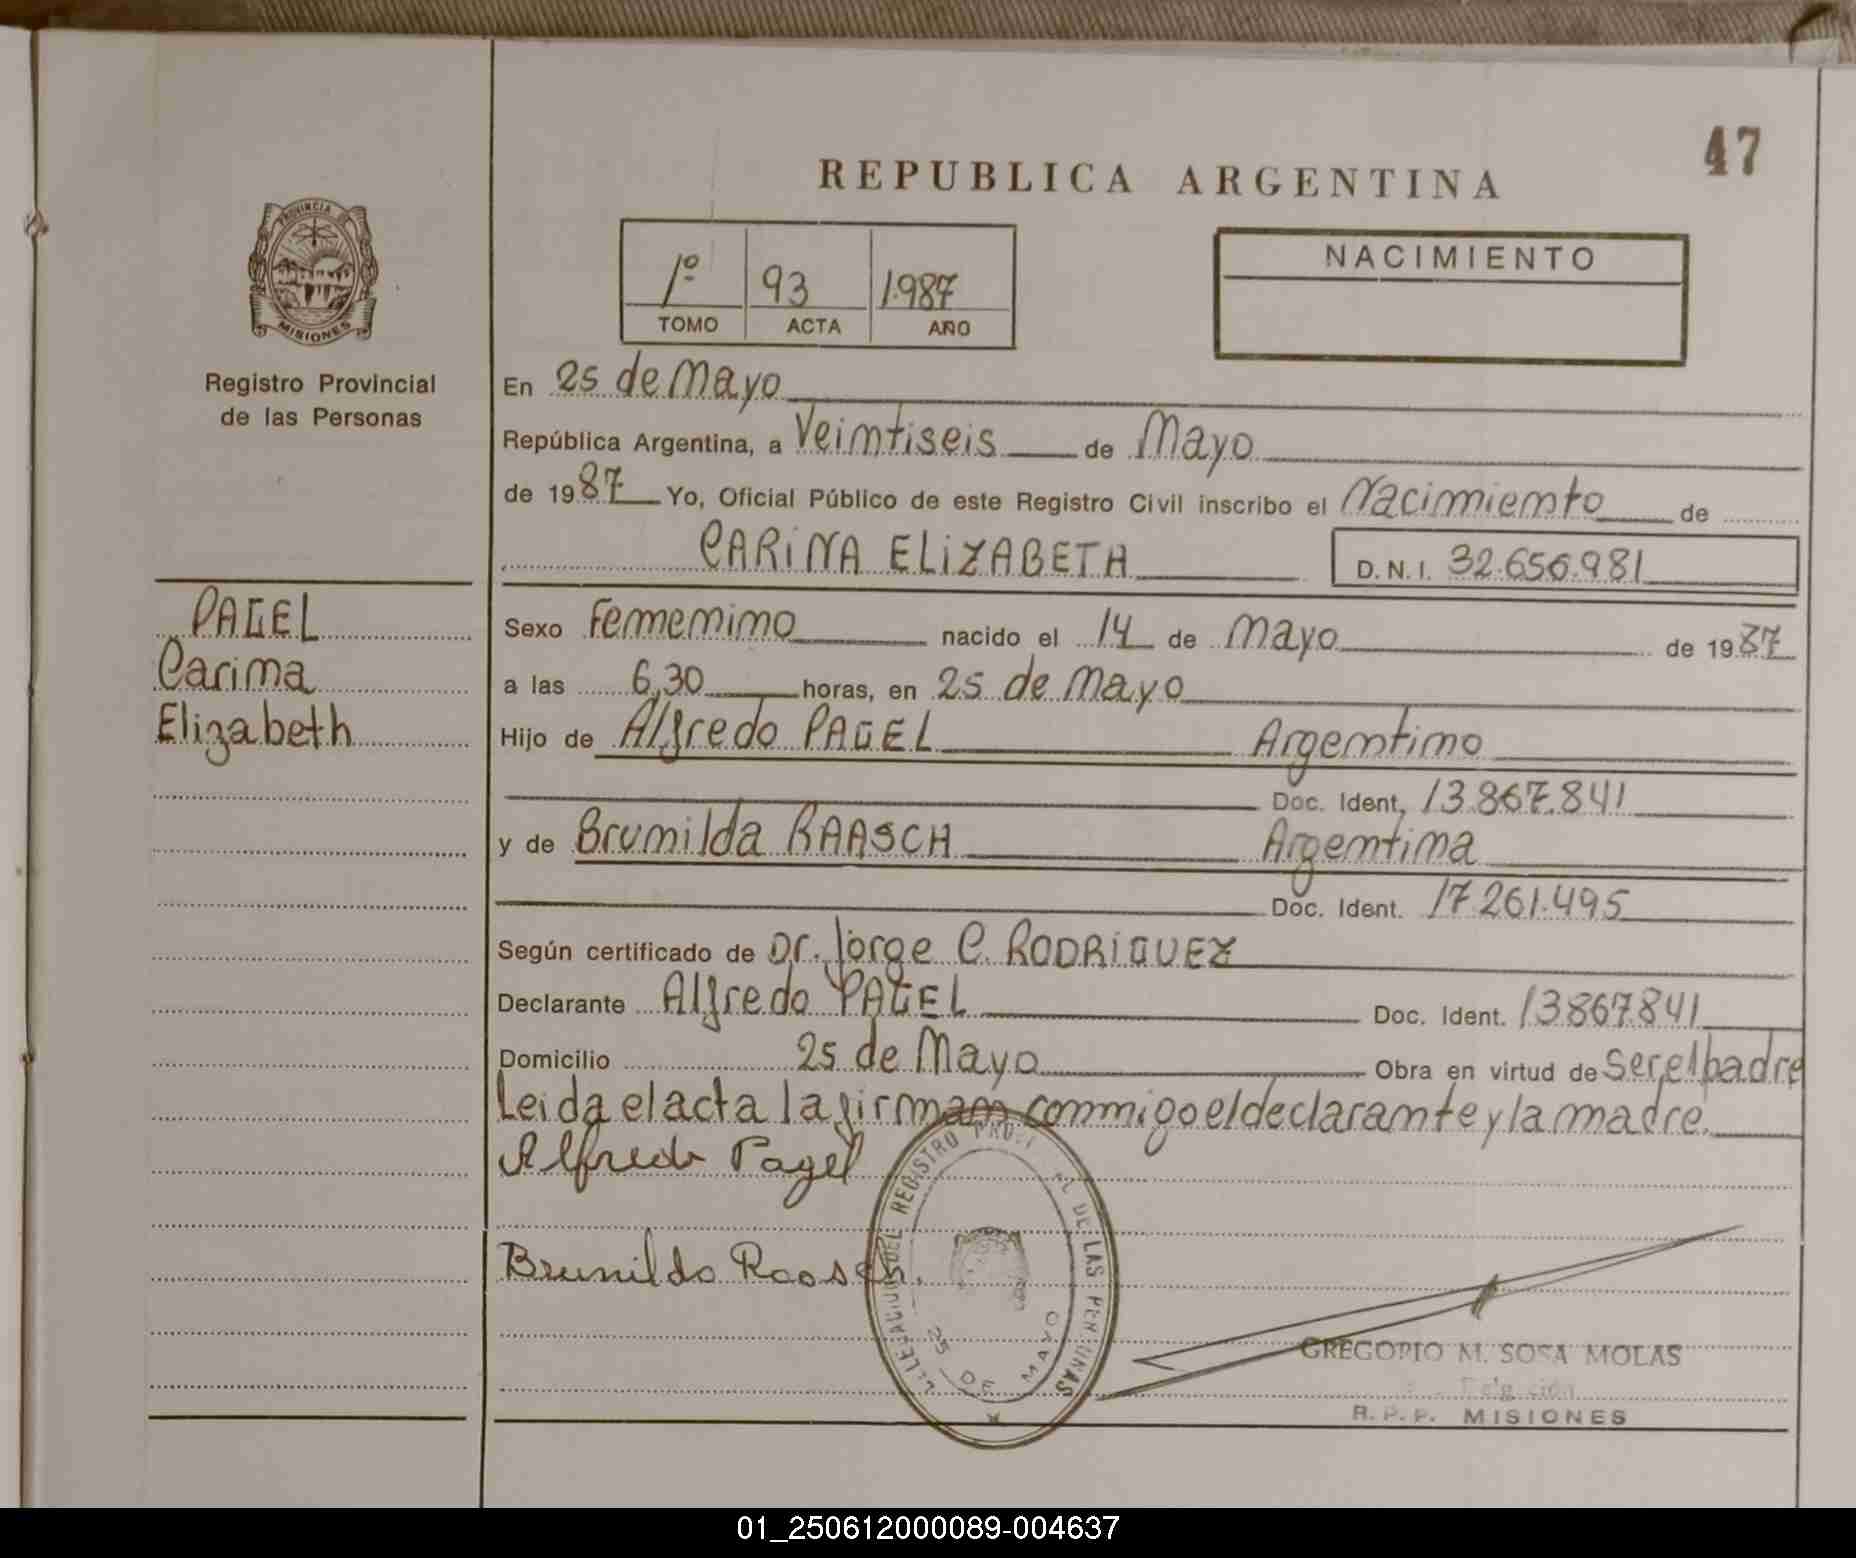 47
REPUBLICA ARGENTINA
PROVINCIA DE
MISIONES
Registro Provincial
de las Personas
1º 93 1.987
TOMO ACTA AÑO
NACIMIENTO
En 25 de Mayo
República Argentina, a Veintiseis de Mayo
de 1987 Yo, Oficial Público de este Registro Civil inscribo el Nacimiento de
CARINA ELIZABETH D.N.I. 32.656.981
PAGEL
Carina
Elizabeth
Sexo Femenino nacido el 14 de Mayo de 1987
a las 6,30 horas, en 25 de Mayo
Hijo de Alfredo PAGEL Argentino
Doc. Ident. 13.867.841
y de Brunilda RAASCH Argentina
Doc. Ident. 17.261.495
Según certificado de Dr. Jorge C. RODRIGUEZ
Declarante Alfredo PAGEL Doc. Ident. 13867841
Domicilio 25 de Mayo Obra en virtud de ser el padre
Leida el acta la firman conmigo el declarante y la madre.
Alfredo Pagel
Brunilda Raasch.
DEL REGISTRO DE LAS PERSONAS
25 DE MAYO
GREGORIO M. SOSA MOLAS
R.P.P. MISIONES
01_250612000089-004637